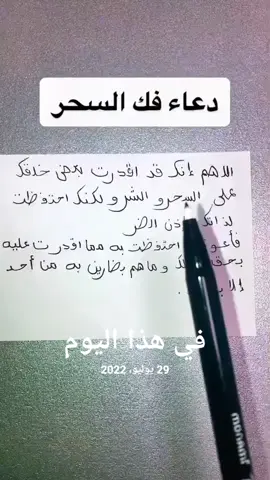 دعاء فك السحر
اللاهم إنك قد اقدرت بعض خلقك
على السحر و الشر و لكنك احتفظت
لذاتك إذن الضر
فأعوذ احتفظت به مما اقدرت عليه
بحق و ماهم بضارين به من أحد
إلا
في هذا اليوم
29 يوليو، 2022